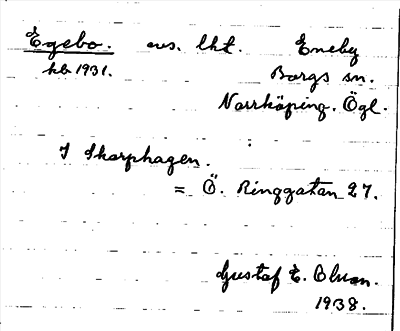 Egebo. avs. lht. Eneby
kb 1931. Borgs sn.
Norrköping. Ögl.
I Skarphagen.
= Ö. Ringgatan 27.
Gustaf E. Bluan.
1938.